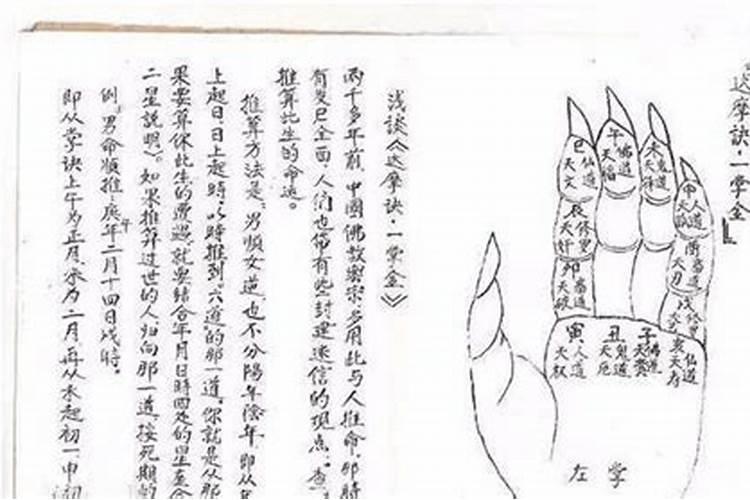 达摩訣·一掌金』
浅談《达摩訣·一掌金》
兩千多年前,中國佛教密宗,多用此与人推命,那時
有失已全面,人们也带有些封建迷信的观点。查
推算此生的命运。
推算方法是:男順女逆,也不分陽年陰年,即从年
上起日,日上起時,以時推到"六道"的那一道,你就是从那
果要算你此生的遭遇,就要結合年月日時四处的星座合
二星說明》。如果推算过世的人归向那一道,按死期的
例:男命順推:庚午年二月十四日戌時。
即从掌訣上午为正月,未为二月,再从未起初一,申初
巳 仙道 天文
午 佛道 天福
未 鬼道 天
申 人道 天孤
辰 修罗 天奸
酉 畜道 天刃
卯 畜道 天破
戌 修罗 天
寅 人道 天权
丑 鬼道 天厄
子 佛道 天貴
亥 仙道 天寿
左 掌